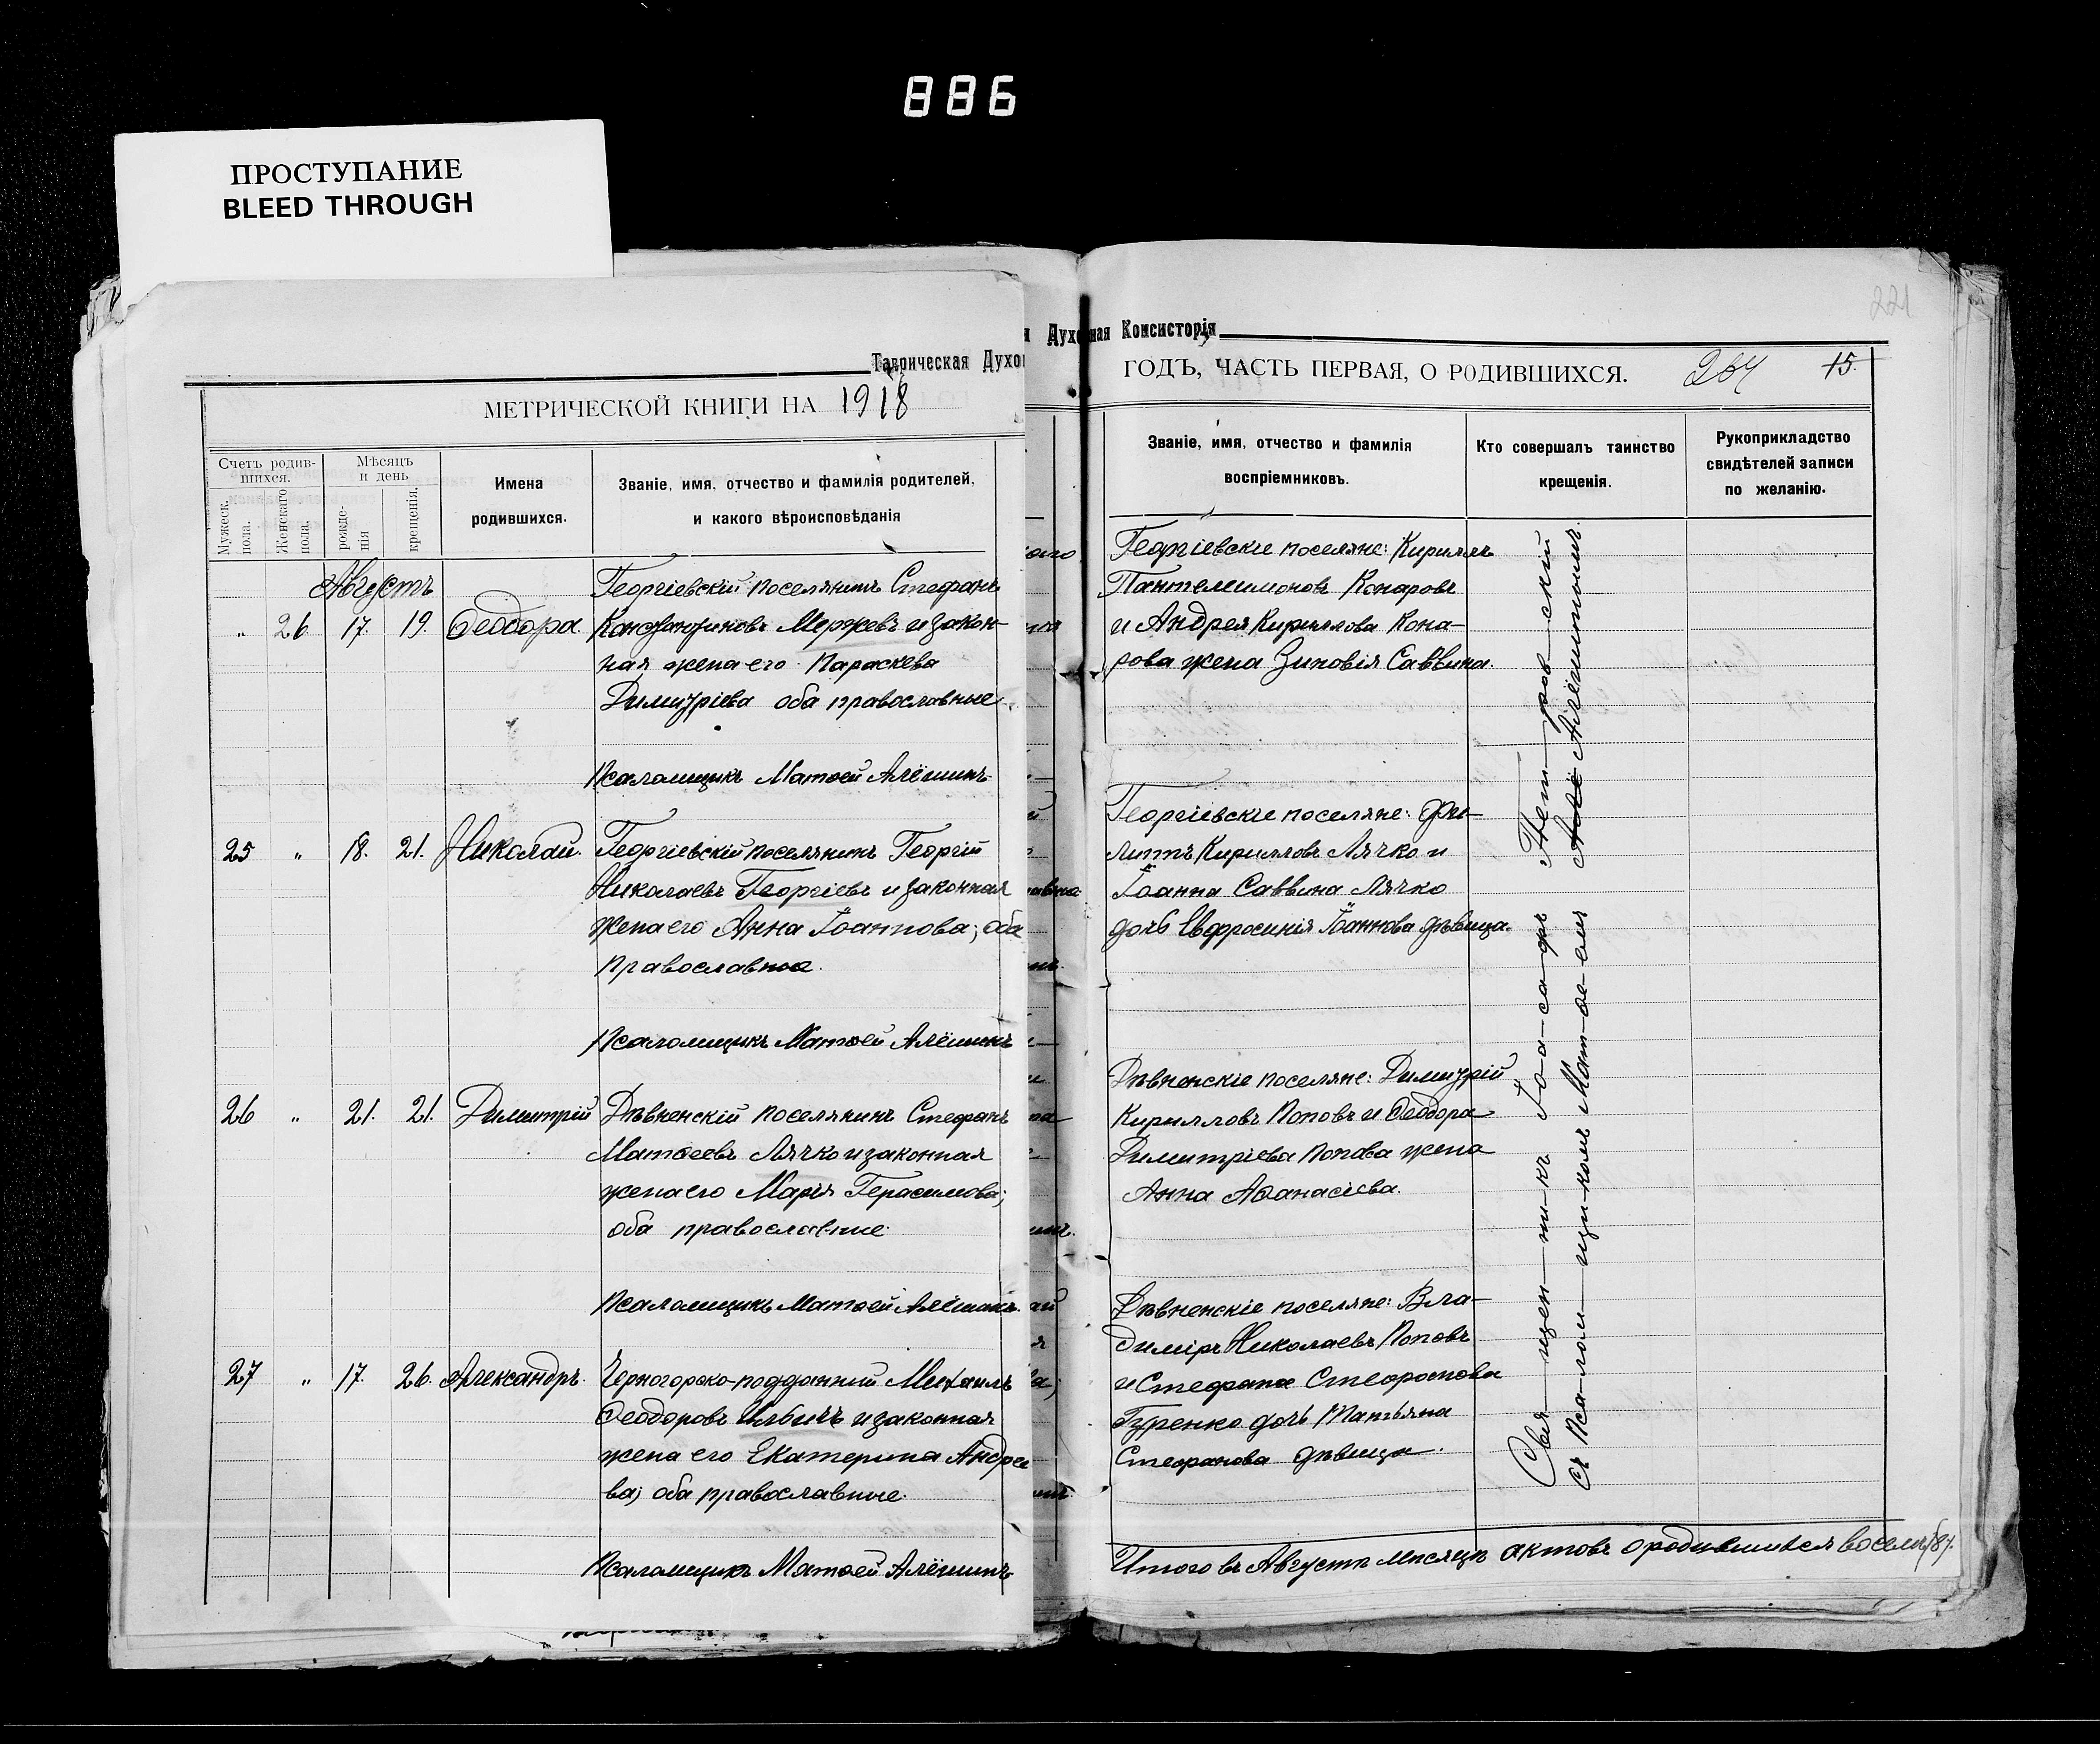 886
ПРОСТУПАНИЕ
BLEED THROUGH
Таврическая Духо
МЕТРИЧЕСКОЙ КНИГИ НА 1918
Счетъ родив-
шихся.
Мужеск. пола.
Женскаго пола.
Мѣсяцъ
и день
рожде-
нія
крещенія.
Имена
родившихся.
Званіе, имя, отчество и фамилія родителей,
и какого вѣроисповѣданія
Августъ
Георгіевскій поселянинъ Стефанъ
„ 26 17. 19. Ѳеодора. Константиновъ Мержевъ и закон-
ная жена его Параскева
Димитріева оба православные
Псаломщикъ Матѳей Алёшинъ
25 „ 18. 21. Николай. Георгіевскій поселянинъ Георгій
Николаевъ Георгіевъ и законная
жена его Анна Іоаннова; оба
православные.
Псаломщикъ Матѳей Алёшинъ
26 „ 21. 21. Димитрій Дѣвненскій поселянинъ Стефанъ
Матѳеевъ Лячко и законная
жена его Марія Герасимова;
оба православные
Псаломщикъ Матѳей Алёшинъ.
27 „ 17. 26. Александръ. Черногорско-подданный Михаилъ
Ѳеодоровъ Ильичъ и законная
жена его Екатерина Андрее
ва; оба православные.
Псаломщикъ Матѳей Алёшинъ
я Духовная Консисторія
221
ГОДЪ, ЧАСТЬ ПЕРВАЯ, О РОДИВШИХСЯ. 264 15.
Званіе, имя, отчество и фамилія
воспріемниковъ.
Кто совершалъ таинство
крещенія.
Рукоприкладство
свидѣтелей записи
по желанію.
Георгіевскіе поселяне: Кириллъ
Пантелимоновъ Конаровъ
и Андрея Кириллова Кона-
рова жена Зиновія Саввина.
Георгіевскіе поселяне: Фи-
липпъ Кирилловъ Лячко и
Іоанна Саввина Лячко
дочь Евфросинія Іоаннова дѣвица.
Дѣвненскіе поселяне: Димитрій
Кирилловъ Поповъ и Ѳеодора
Димитріева Попова жена
Анна Аѳанасіева.
Дѣвненскіе поселяне: Вла-
диміръ Николаевъ Поповъ
и Стефана
Гуренко дочь Татьяна
Стефанова дѣвица.
Свя-щен-ни-къ Іоа-са-фъ Пет-ров-скій
съ Псалом-щи-комъ Мат-ѳе-емъ Алёшинымъ.
Итого въ Августѣ мѣсяцѣ актовъ о родившихся восемь /8/.